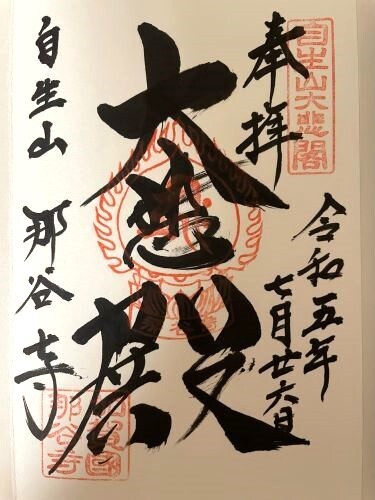 自生山大悲閣
奉拝
令和五年
七月廿六日
大悲殿
自生山
那谷寺
那谷寺